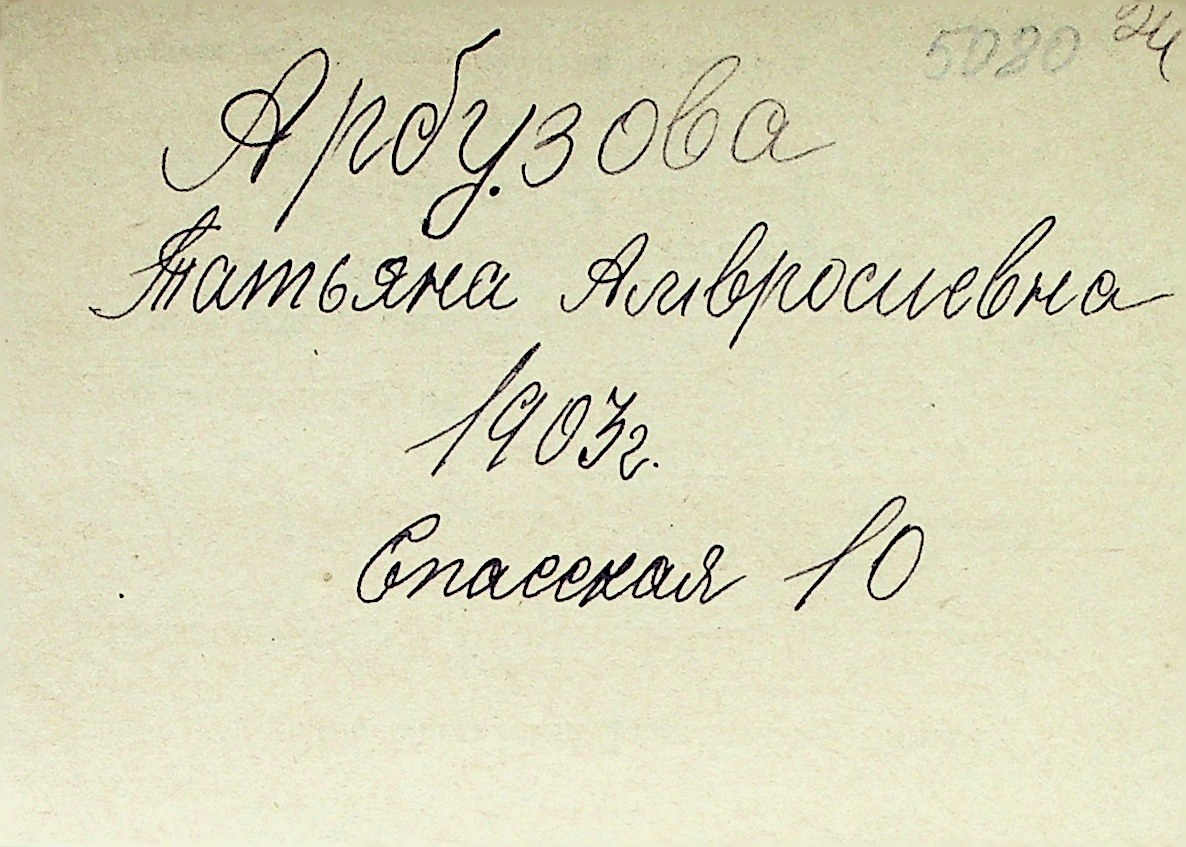 5080 24
Арбузова
Татьяна Амвросиевна
1903г.
Спасская 10